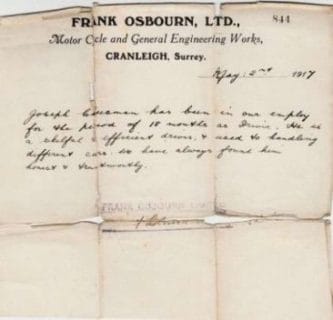 FRANK OSBOURN, LTD.,
844
Motor Cycle and General Engineering Works,
CRANLEIGH, Surrey.
May 2nd 1917
Joseph has been in our employ
for the period of 18 months as Driver. He is
a skilful & efficient driver, & used to handling
different cars. We have always found him
honest & trustworthy.
FRANK OSBOURN LIMITED